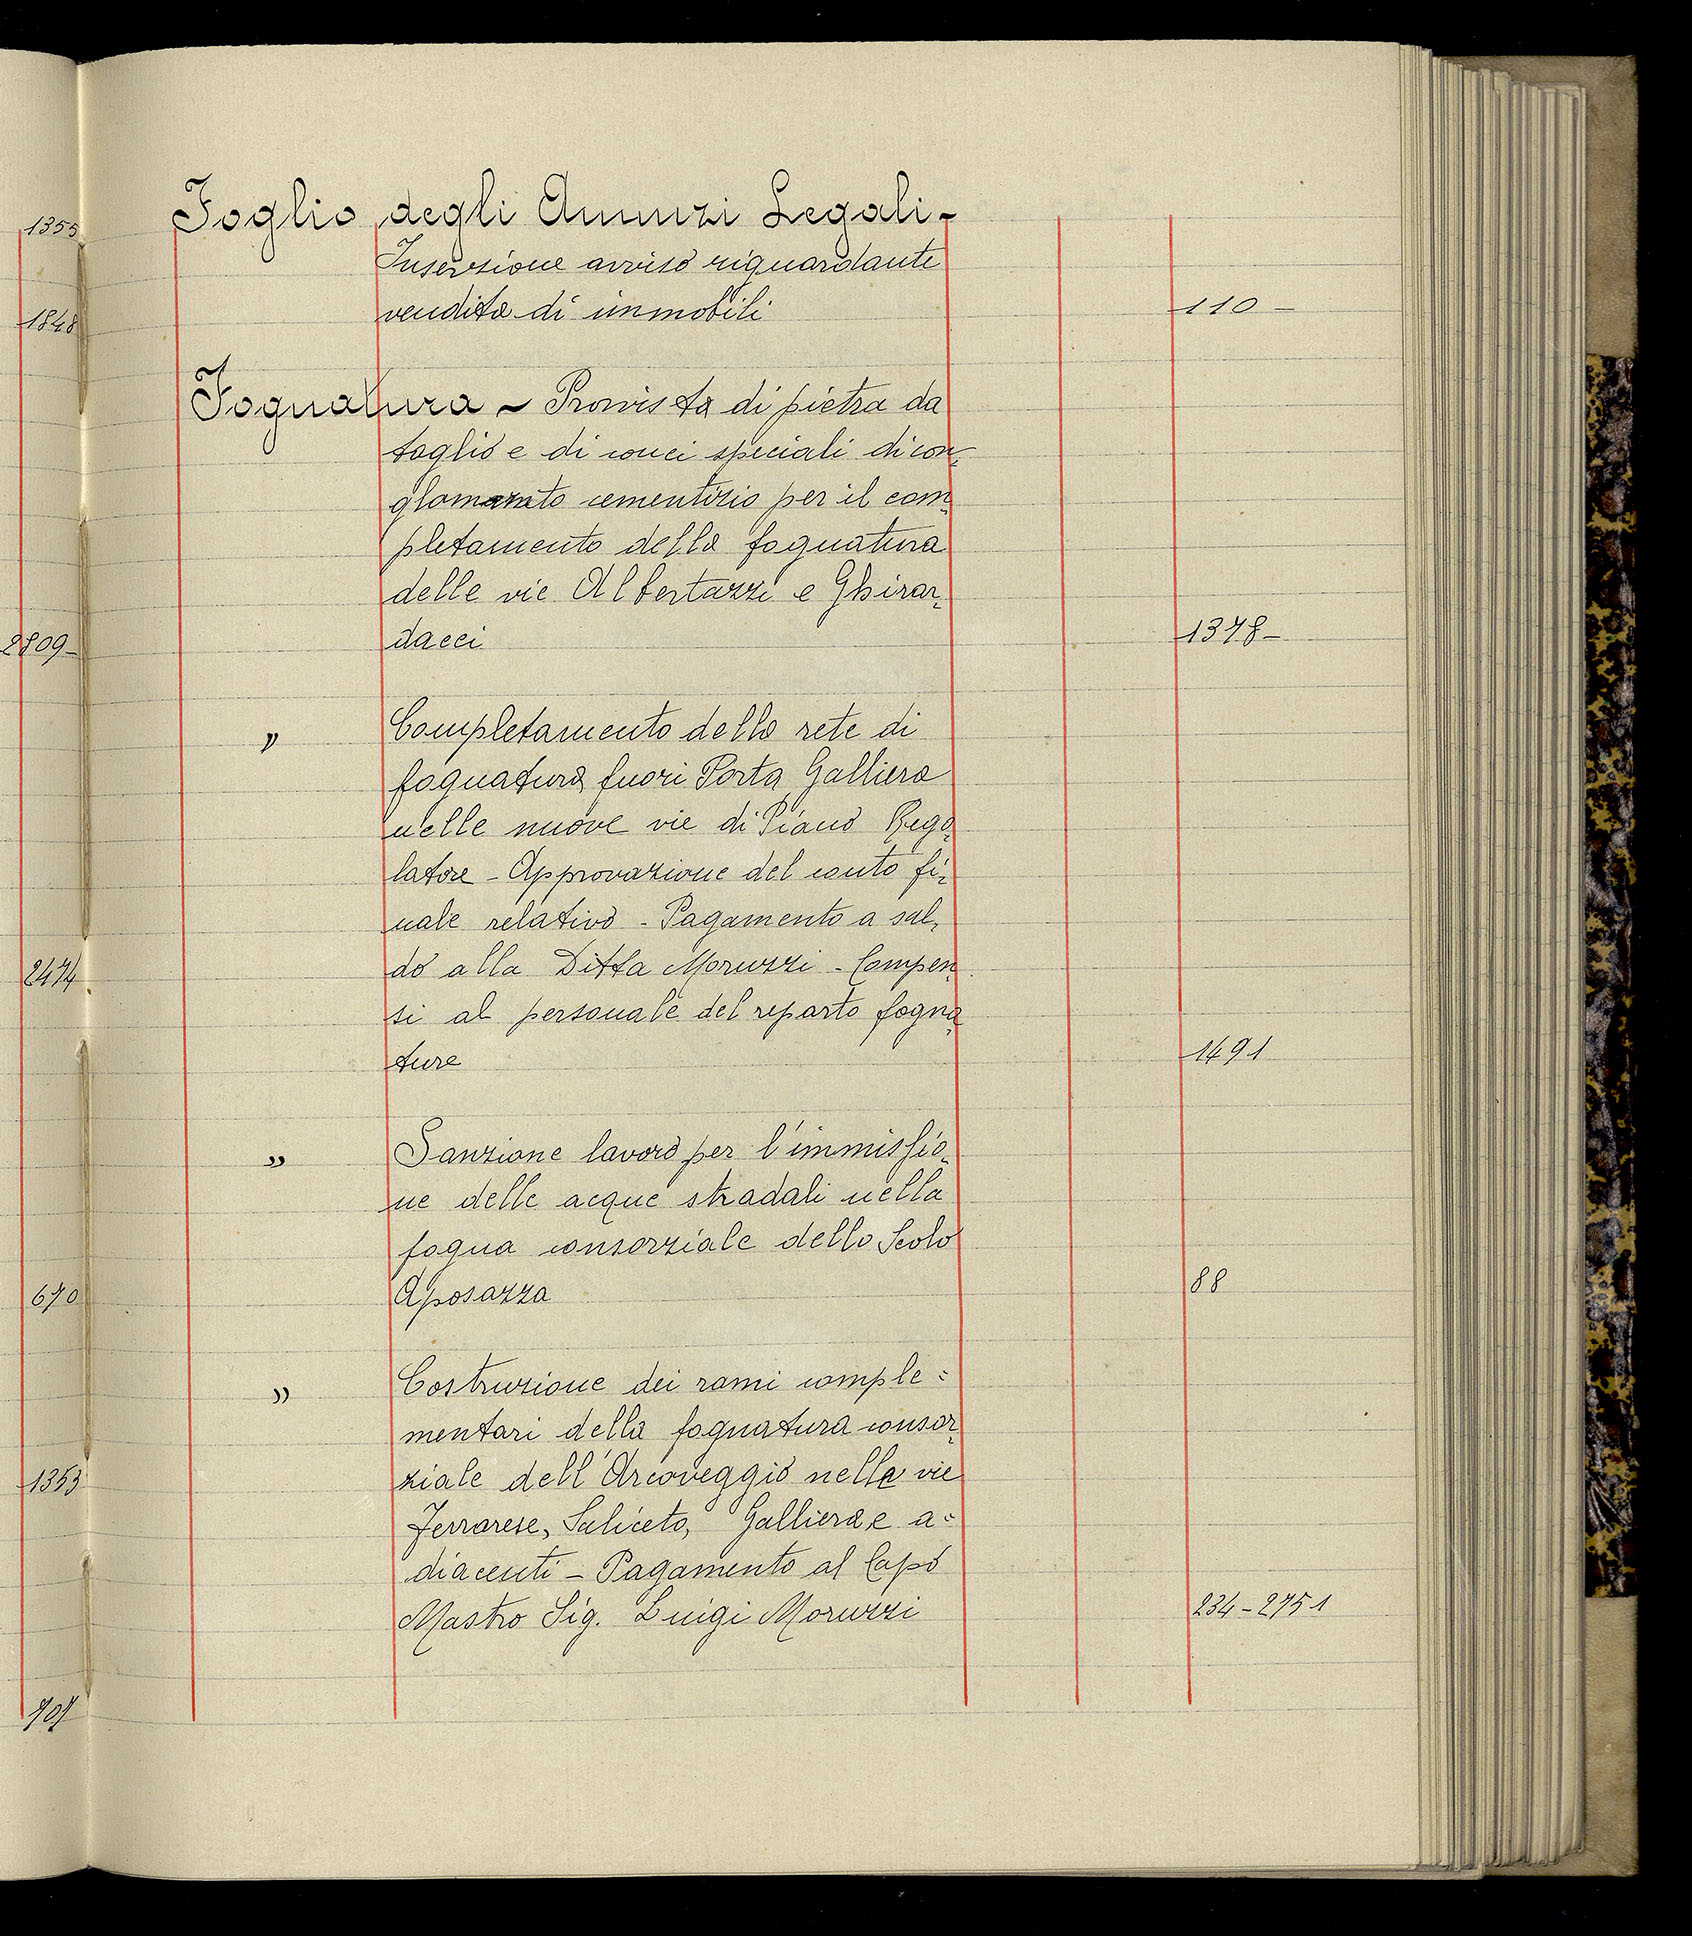 Foglio degli Annunzi Legali -
Inserzione avviso riguardante
vendita di immobili 110 -
Fognatura - Provvista di pietra da
taglio e di conci speciali di con-
glomerato cementizio per il com-
pletamento della fognatura
delle vie Albertazzi e Ghirar-
dacci 1378 -
" Completamento della rete di
fognatura fuori Porta Galliera
nelle nuove vie di Piano Rego-
latore - Approvazione del conto fi-
nale relativo - Pagamento a sal-
do alla Ditta Moruzzi - Compen-
si al personale del reparto fogna-
ture 1491
" Sanzione lavoro per l'immissio-
ne delle acque stradali nella
fogna consorziale dello Scolo
Aposazza 88
" Costruzione dei rami comple=
mentari della fognatura consor-
ziale dell'Arcoveggio nelle vie
Ferrarese, Saliceto, Galliera e a=
diacenti - Pagamento al Capo
Mastro Sig. Luigi Moruzzi 234 - 2751
1355
1848
2809 -
2474
670
1353
707